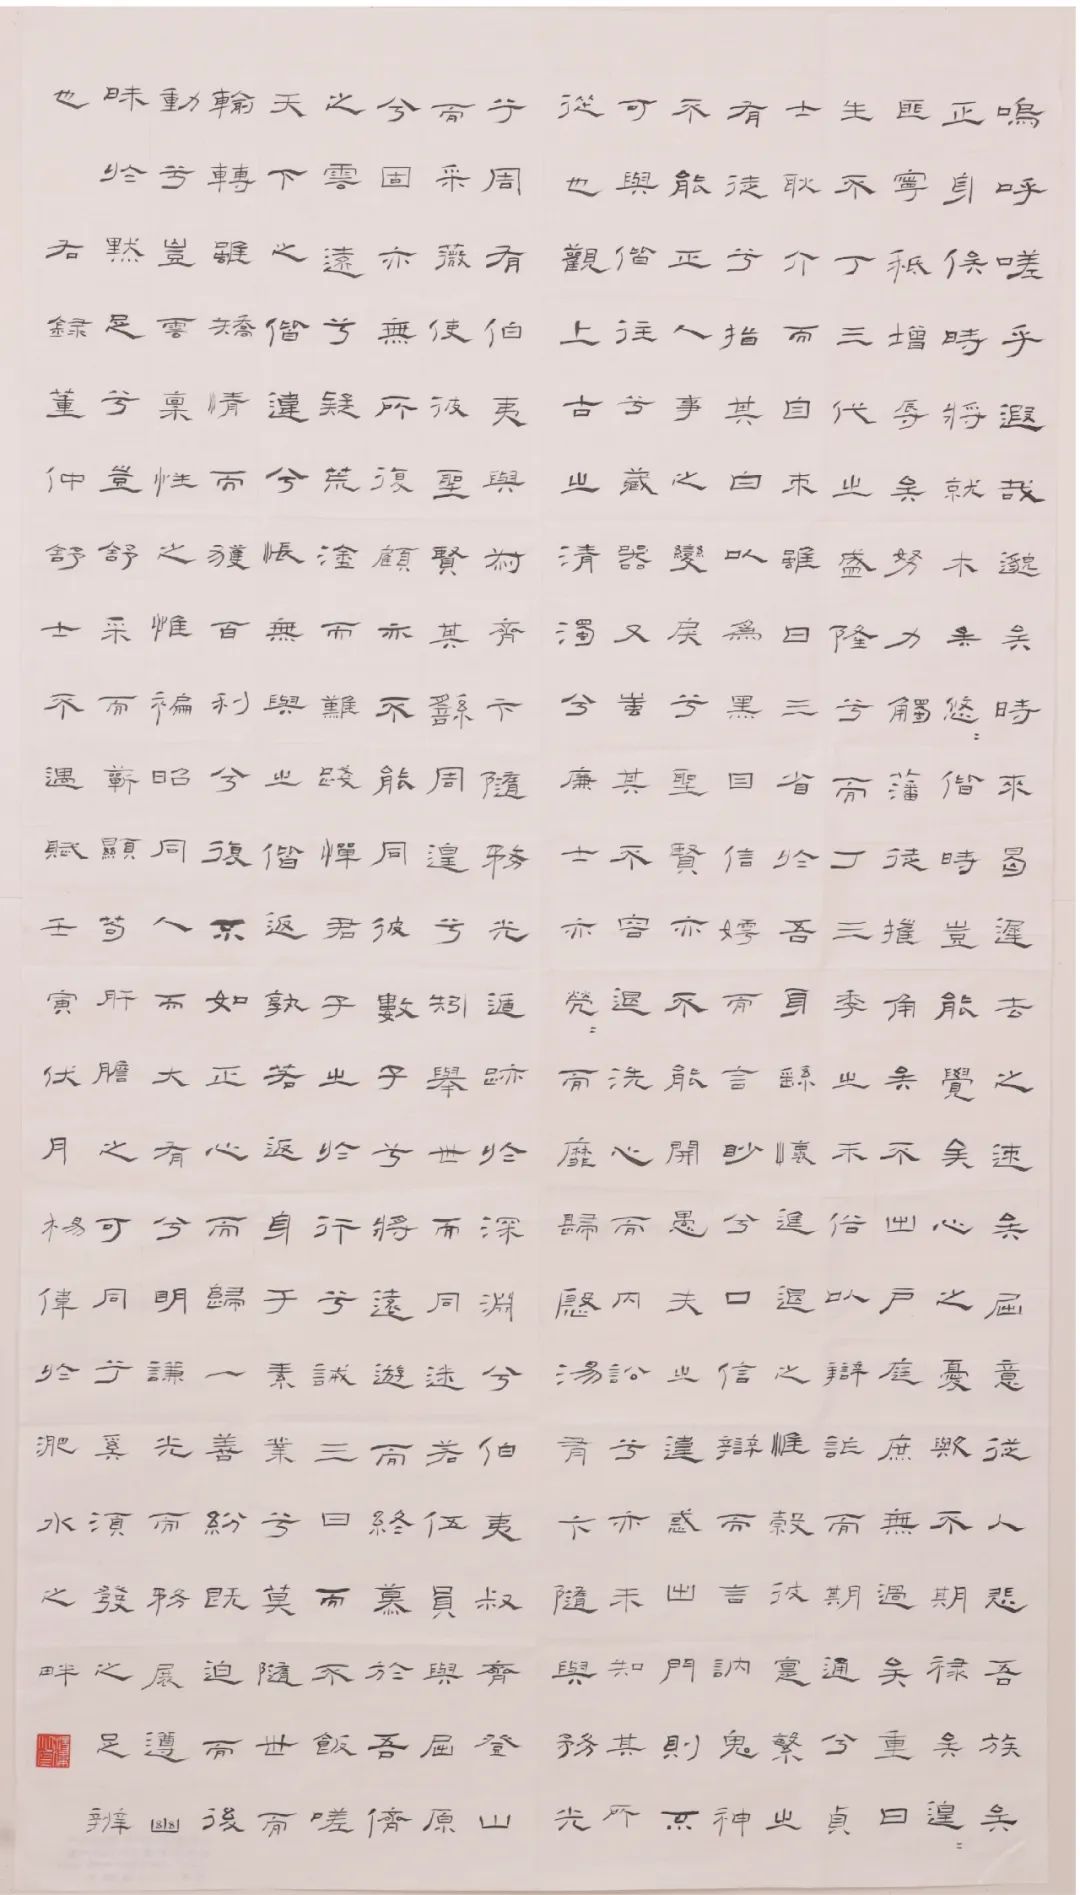 嗚呼嗟乎遐哉邈矣時來曷遲去之速矣屈意從人悲吾族矣
正身俟時將就木矣悠〻偕時豈能覺矣心之憂歟不期祿矣遑〻
匪寧秪增辱矣努力觸藩徒摧角矣不出戶庭庶無過矣重曰
生不丁三代之盛隆兮而丁三季之末俗以辯詐而期通兮貞
士耿介而自束雖日三省於吾身繇懷進退之惟穀彼寔繁之
有徒兮指其白以爲黑目信嫮而言眇兮口信辯而言訥鬼神
不能正人事之變戾兮聖賢亦不能開愚夫之違惑出門則不
可與偕往兮藏器又蚩其不容退洗心而內訟兮亦未知其所
從也觀上古之清濁兮廉士亦煢〻而靡歸殷湯有卞隨與務光
兮周有伯夷與叔齊卞隨務光遁跡於深淵兮伯夷叔齊登山
而采薇使彼聖賢其繇周遑兮矧舉世而同迷若伍員與屈原
兮固亦無所復顧亦不能同彼數子兮將遠遊而終慕於吾儕
之雲遠兮疑荒塗而難踐憚君子之於行兮誡三日而不飯嗟
天下之偕違兮悵無與之偕返孰若返身于素業兮莫隨世而
輸轉雖矯情而獲百利兮復不如正心而歸一善紛既迫而後
動兮豈雲稟性之惟褊昭同人而大有兮明謙光而務展遵幽
昧於默足兮豈舒采而蘄顯苟肝膽之可同兮奚須發之足辨
也 右錄董仲舒士不遇賦壬寅伏月楊偉於淝水之畔